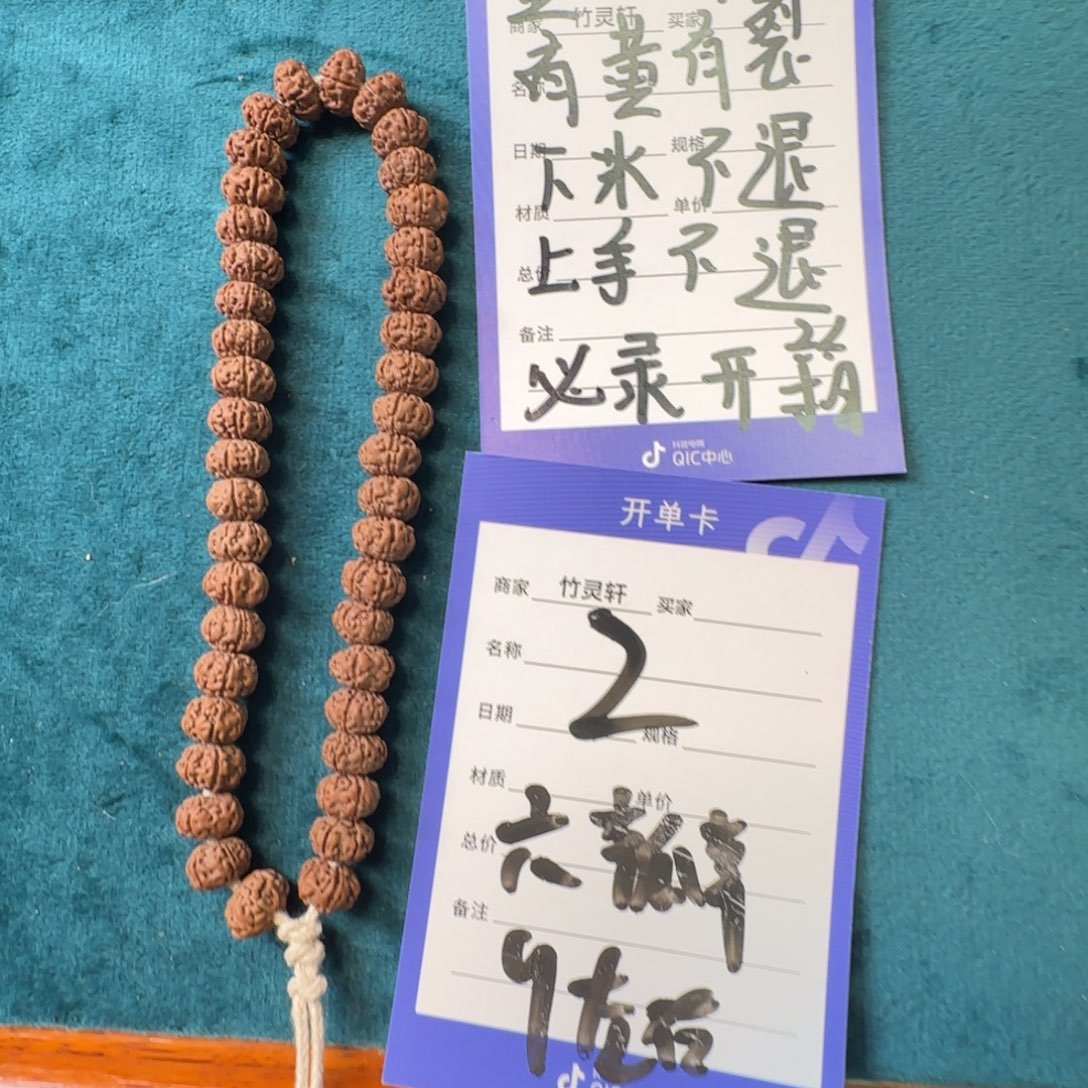 商家 竹灵轩 买家
名称 有黄有裂
日期 规格
下水不退
材质 单价
总价 上手不退
备注
必录开箱
抖音电商
QIC中心
开单卡
商家 竹灵轩 买家
名称
2
日期 规格
材质 单价
六瓣
总价
备注
9龙后